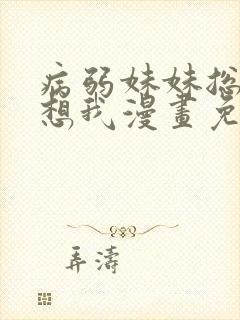 病弱妹妹总
想我漫畫免
弄濤